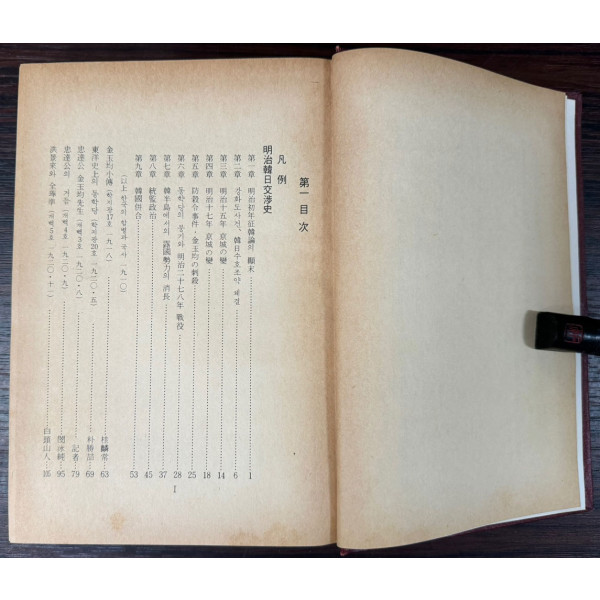 第一 目次
凡例
明治韓日交渉史
第一章 明治初年征韓論의 顚末 1
第二章 강화도사건、韓日수호조약 체결 6
第三章 明治十五年 京城の變 14
第四章 明治十七年 京城の變 18
第五章 防穀令事件・金玉均의 刺殺 25
第六章 동학당의 봉기와 明治二十七八年 戰役 28
第七章 韓半島에서의 露國勢力의 消長 37
第八章 統監政治 45
第九章 韓國併合 53
(以上 한국의 합병과 국사 一九一〇)
金玉均小傳 (학지광17호 一九一八) 63
東洋史上의 동학당 (학지광20호 一九二〇・五) 朴勝喆 69
忠達公 金玉均先生 (개벽3호 一九二〇・八) 記者 79
忠達公의 (개벽4호 一九二〇・九) 閔泳純 95
洪景來와 全琫準 (개벽5호 一九二〇・十一) 白頭山人
I